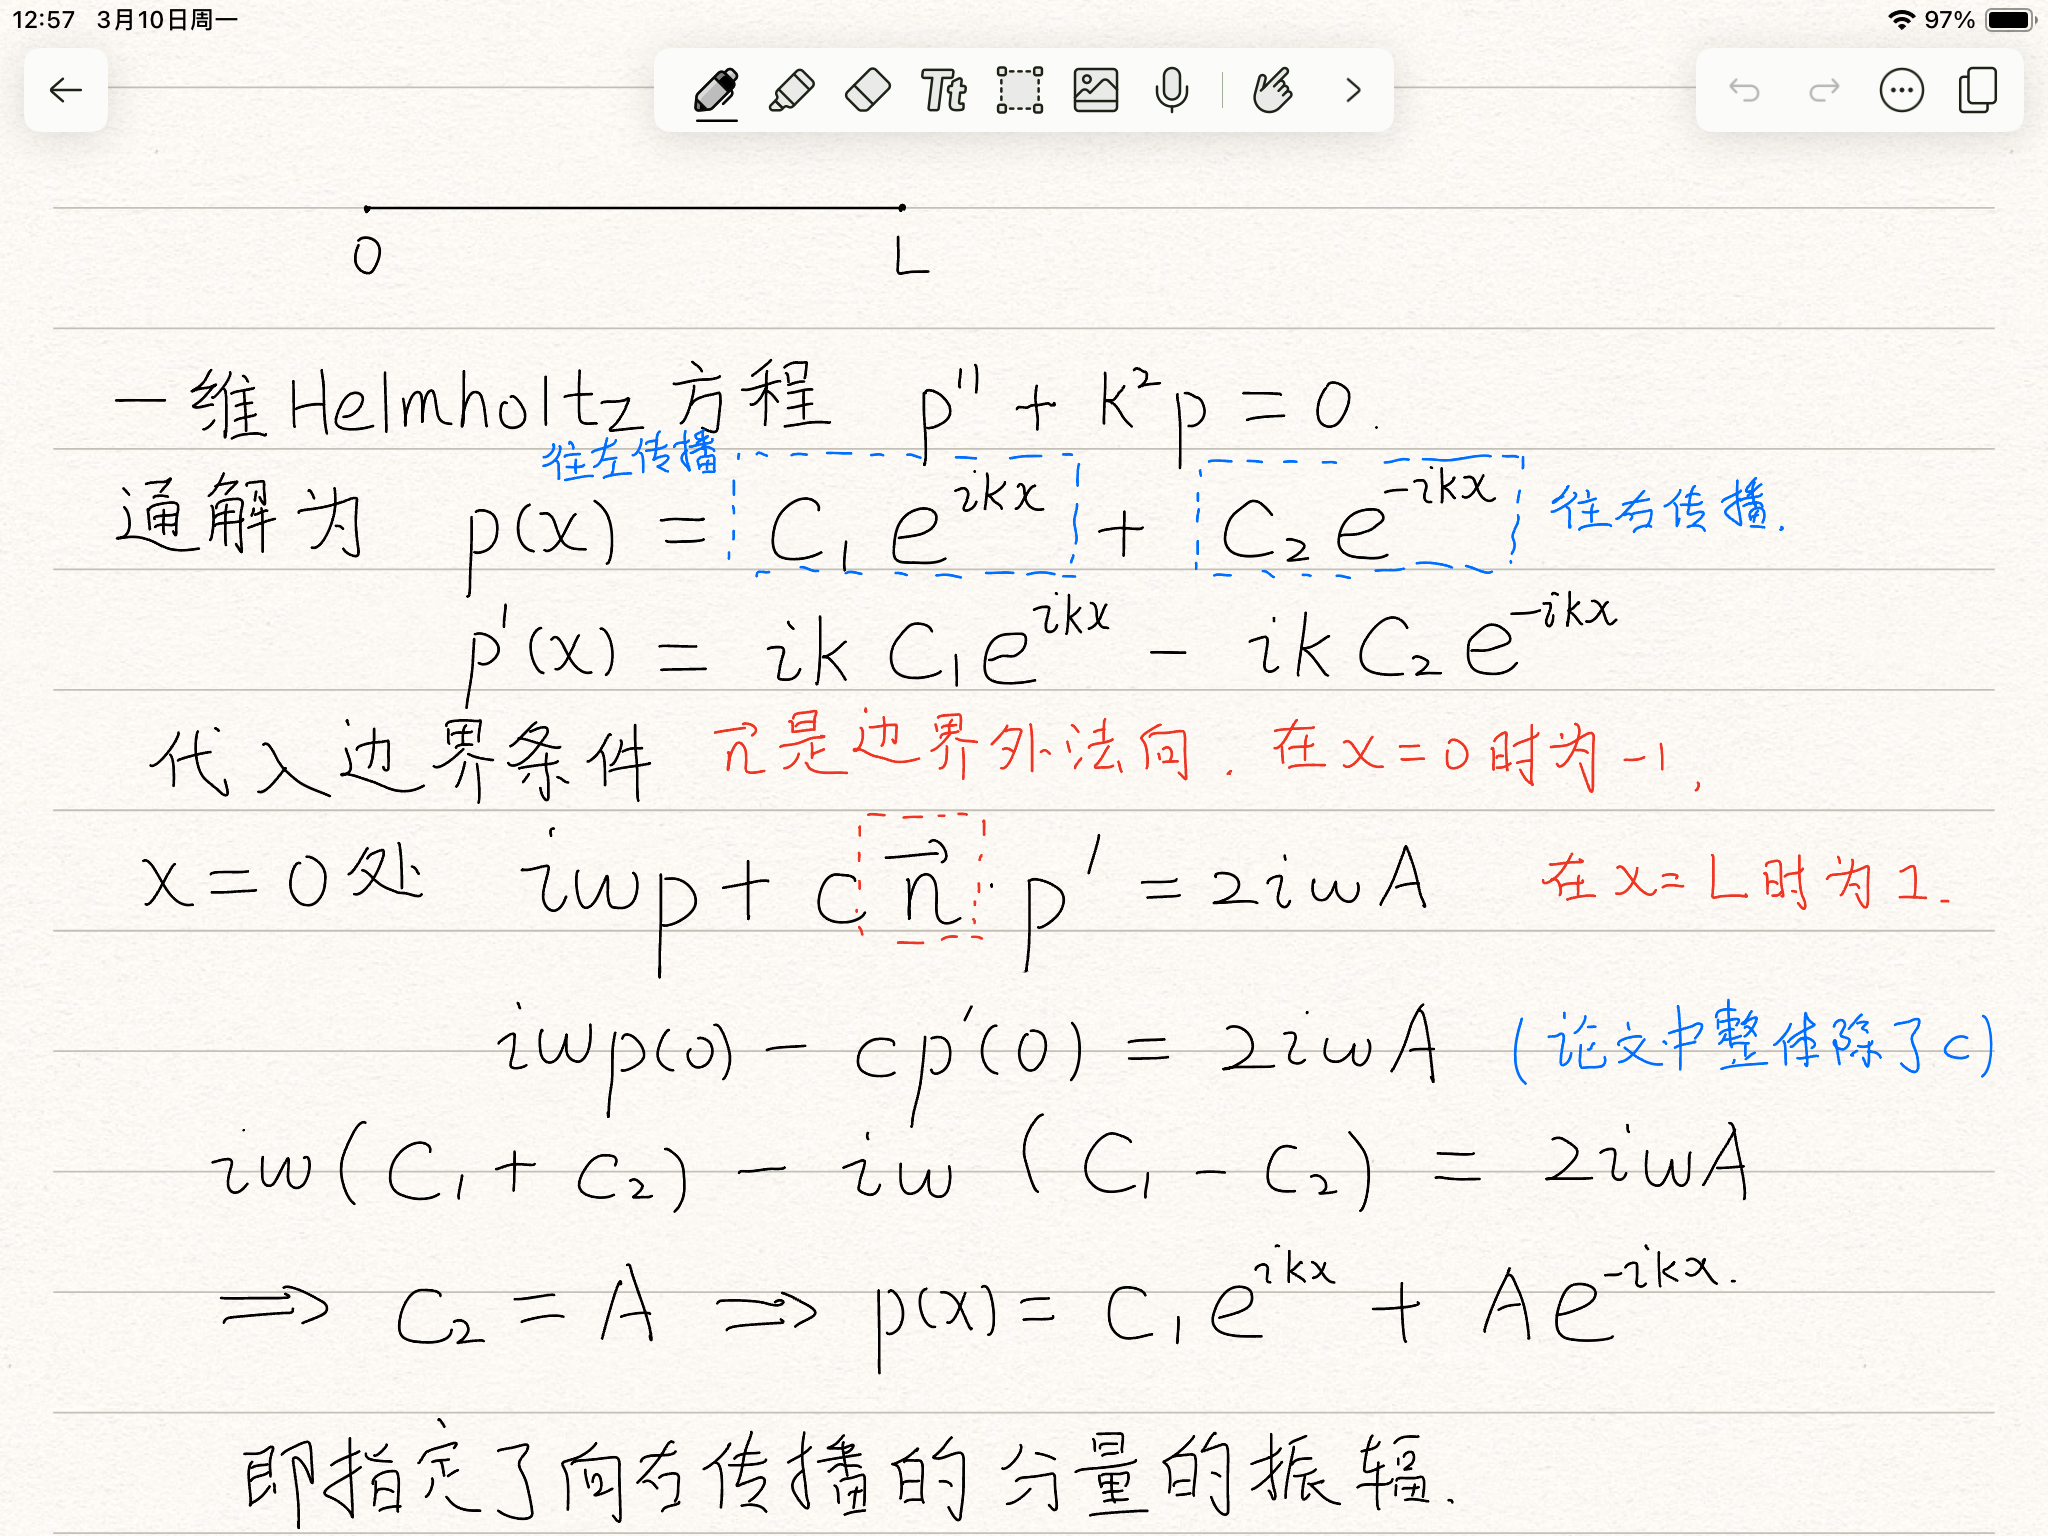 12:57 3月10日周一 97%
Tt
0 L
一维Helmholtz方程 p'' + k²p = 0.
往左传播
通解为 p(x) = C₁e^{ikx} + C₂e^{-ikx} 往右传播.
p'(x) = ikC₁e^{ikx} - ikC₂e^{-ikx}
代入边界条件 n⃗是边界外法向. 在x=0时为-1,
x=0处 iwp + cn⃗·p' = 2iwA 在x=L时为1.
iwp(0) - cp'(0) = 2iwA (论文中整体除了c)
iw(C₁+C₂) - iw(C₁-C₂) = 2iwA
⇒ C₂ = A ⇒ p(x) = C₁e^{ikx} + Ae^{-ikx}.
即指定了向右传播的分量的振辐.